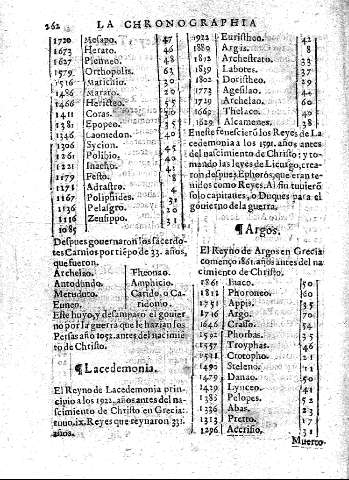 262 LA CHRONOGRAPHIA
1720 Mesapo. 47
1673 Herato. 46
1627 Plemneo. 48
1579 Orthopolis. 63
1516 Matichiu. 30
1486 Marato. 20
1466 Heristeo. 55
1411 Coras. 30
1381 Epopeo. 35
1346 Laomedon. 40
1306 Sycion. 45
1261 Polibio. 40
1221 Inaesto. 42
1179 Festo. 8
1171 Adrastro. 4
1167 Polipsides. 31
1136 Pelasgro. 20
1116 Zeusippo. 31
1085
Despues gouernaron los sacerdo-
tes Carnios por tiẽpo de 33. años,
que fueron.
Archelao. Theonao.
Antodundo. Amphicio.
Metudoto. Carido, o Ca-
Euneo. ridonio.
Este huyo, y desamparo el gouier
no por la guerra que le hazian los
Persas año 1052. antes del nacimiẽ
to de Christo.
¶Lacedemonia.
El Reyno de Lacedemonia prin-
cipio a los 1922. años antes del na-
scimiento de Christo en Grecia:
tuuo .ix. Reyes que reynaron 331.
años.
1922 Euristheo. 42
1880 Argis. 8
1872 Archestrato. 33
1839 Labores. 37
1802 Doristheo. 29
1773 Agesilao. 44
1729 Archelao. 60
1669 Thelaco. 40
1629 Alcamenes. 38
En este fenescierõ los Reyes de La
cedemonia a los 1591. años antes
del nascimiento de Christo: y to-
mando las leyes de Licurgo, crea-
ron despues Ephoros, que eran te-
nidos como Reyes. Al fin tuuierõ
solo capitanes, o Duques para el
gouierno de la guerra.
¶Argos.
El Reyno de Argos en Grecia
començo 1861. años antes del na-
cimiento de Christo.
1861 Inaco. 50
1812 Phoroneo. 60
1751 Appis. 35
1716 Argo. 70
1646 Crasso. 54
1592 Phorbas. 35
1557 Troyphas. 46
1511 Crotopho. 21
1490 Steleno. 11
1479 Danao. 50
1429 Lynceo. 41
1388 Pelopes. 52
1336 Abas. 23
1313 Pretto. 17
1296 Accrisio. 31
Muerto